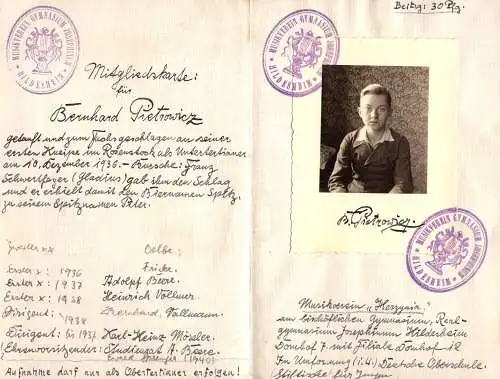 MUSIKVEREIN GYMNASIUM JOSEPHINUM
HILDESHEIM
Mitgliedskarte:
für
Bernhard Pietrowicz
getauft und zum Fuchs geschlagen an seiner
ersten Kneipe im Rosenstock als Untertertianer
am 10. Dezember 1936. - Bursche: Franz
Schwertfeger (Gladius) gab ihm den Schlag
und er erhielt damit den Biernamen Spatz,
zu seinem Spitznamen Peter.
Erster x: 1936
Erster x: 1937 Adolf Beere.
Erster x: 1938 Heinrich Vollmer.
Dirigent: 1938 Bernhard
Dirigent: bis 1937 Karl-Heinz Möseler.
Ehrenvorsitzender: Studienrat A. Beere.
(1940)
Aufnahme darf nur als Obertertianer erfolgen!
Beitrg: 30 Pfg.
MUSIKVEREIN GYMNASIUM JOSEPHINUM
HILDESHEIM
B. Pietrowicz.
MUSIKVEREIN GYMNASIUM JOSEPHINUM
HILDESHEIM
Musikverein "Herzynia"
am bischöflichen Gymnasium, Real-
gymnasium Josephinum Hildesheim
Domhof 7 mit Filiale Domhof 12
In Umformung (i.U.) Deutsche Oberschule
Bischöfliche für Jungen